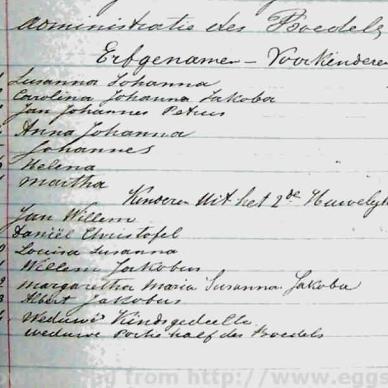 administratie des Boedels
Erfgenamen - Voorkinderen
Susanna Johanna
Carolina Johanna Jakoba
Jan Johannes Petrus
Anna Johanna
Johannes
Helena
Martha
Kinderen Uit het 2de Huwelyk
Jan Willem
Daniël Christofel
Louisa Susanna
Willem Jakobus
Margaretha Maria Susanna Jakoba
Albert Jakobus
Weduwe Kindsgedeelte
Weduwe Portie half des Boedels
from http://www.eggs